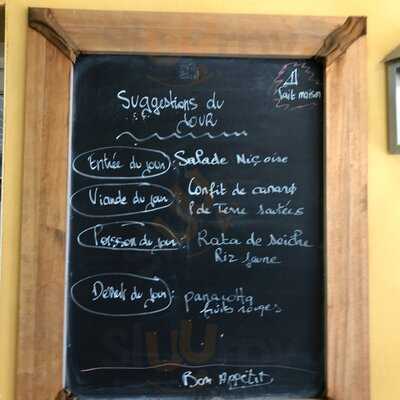 Suggestions du
Jour
fait maison
Entrée du jour : Salade Niçoise
Viande du jour : Confit de canard
P de Terre sautées
Poisson du jour : Rata de seiche
Riz jaune
Dessert du jour : panacotta
fruits rouges
Bon Appétit